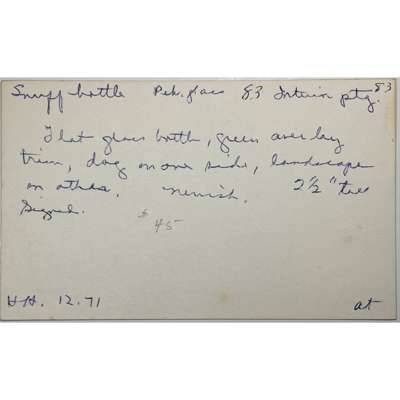 Snuff bottle Pek. glass 83 Interior ptg. 83
Flat glass bottle, green overlay
trim, dog on one side, landscape
on other. newish. 2 1/2" tall
Signed. $45
HH. 12.71 at